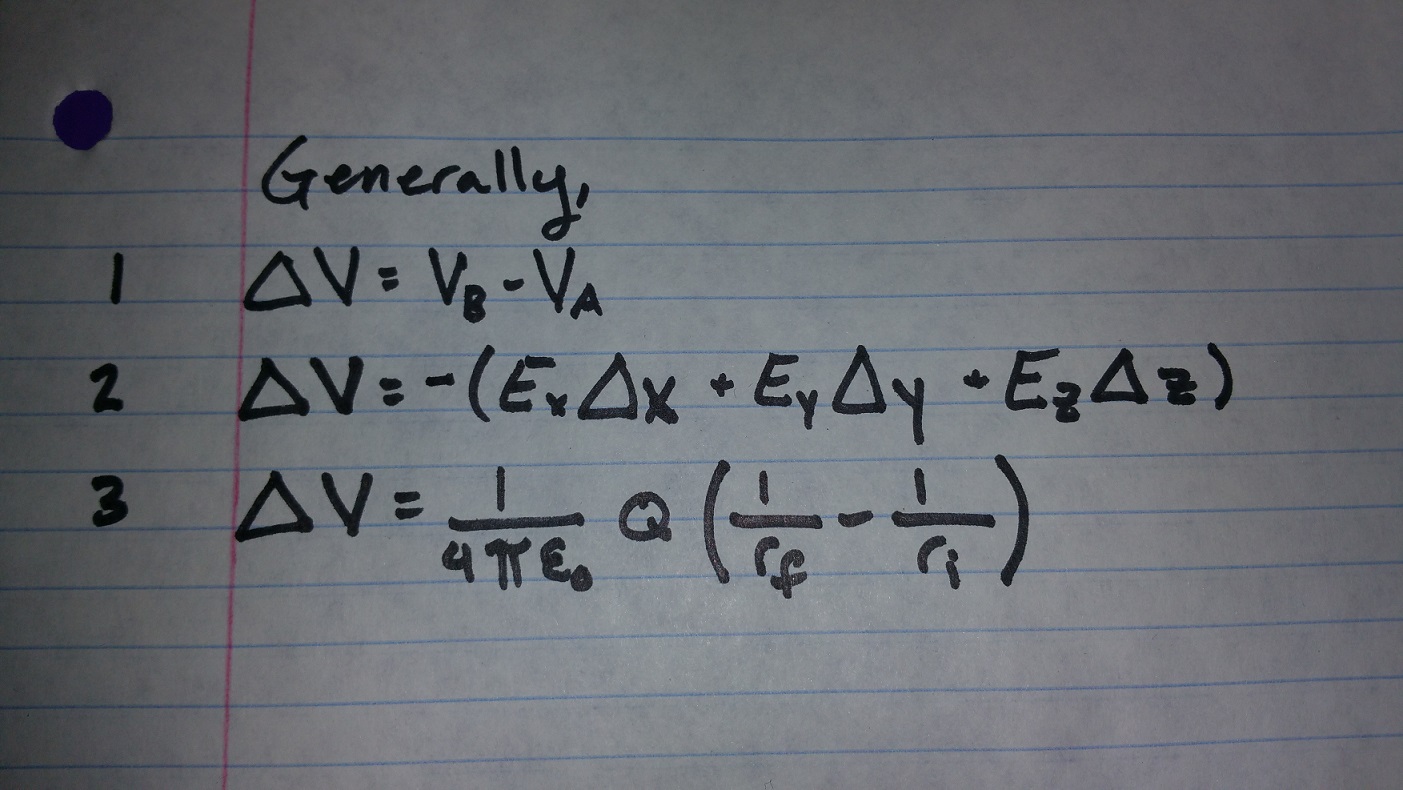 Generally,
1 ΔV = V_B - V_A
2 ΔV = -(E_xΔx + E_yΔy + E_zΔz)
3 ΔV = 1/(4πε₀) Q (1/r_f - 1/r_i)